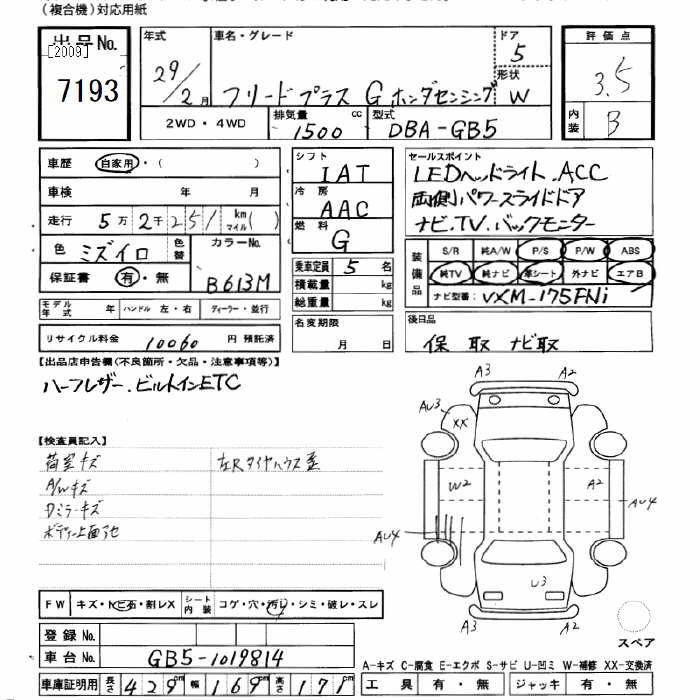 (複合機)対応用紙
出品No. [2009] 7193
年式 29/2月
車名・グレード フリードプラス G ホンダセンシング
ドア 5
形状 W
評価点 3.5
内装 B
2WD・4WD
排気量 1500 cc
型式 DBA-GB5
車歴 自家用・( )
車検 年 月
走行 5万2千251 km マイル( )
色 ミズイロ 色替
カラーNo. B613M
保証書 有・無
モデル年式 年 ハンドル 左・右 ディーラー・並行
リサイクル料金 10060 円 預託済
シフト IAT
冷房 AAC
燃料 G
乗車定員 5 名
積載量 kg
総重量 kg
名変期限 月 日
セールスポイント
LEDヘッドライト.ACC
両側パワースライドドア
ナビ.TV.バックモニター
装備品 S/R 純A/W P/S P/W ABS
純TV 純ナビ 革シート 外ナビ エアB
ナビ型番: VXM-175FNi
後日品
保 取 ナビ取
【出品店申告欄(不良箇所・欠品・注意事項等)】
ハーフレザー.ビルトインETC
【検査員記入】
荷室キズ
A/Wキズ
Dミラーキズ
ボディ上面
左Rタイヤハウス
A3 A2
AU3 XX
W2 A2
AU4 AU4
U3
A3 A2
スペア
FW キズ・トビ石・割レX シート内装 コゲ・穴・汚レ・シミ・破レ・スレ
登録No.
車台No. GB5-1019814
車庫証明用 長さ 429cm 幅 169cm 高さ 171cm
A-キズ C-腐食 E-エクボ S-サビ U-凹ミ W-補修 XX-交換済
工具 有・無 ジャッキ 有・無